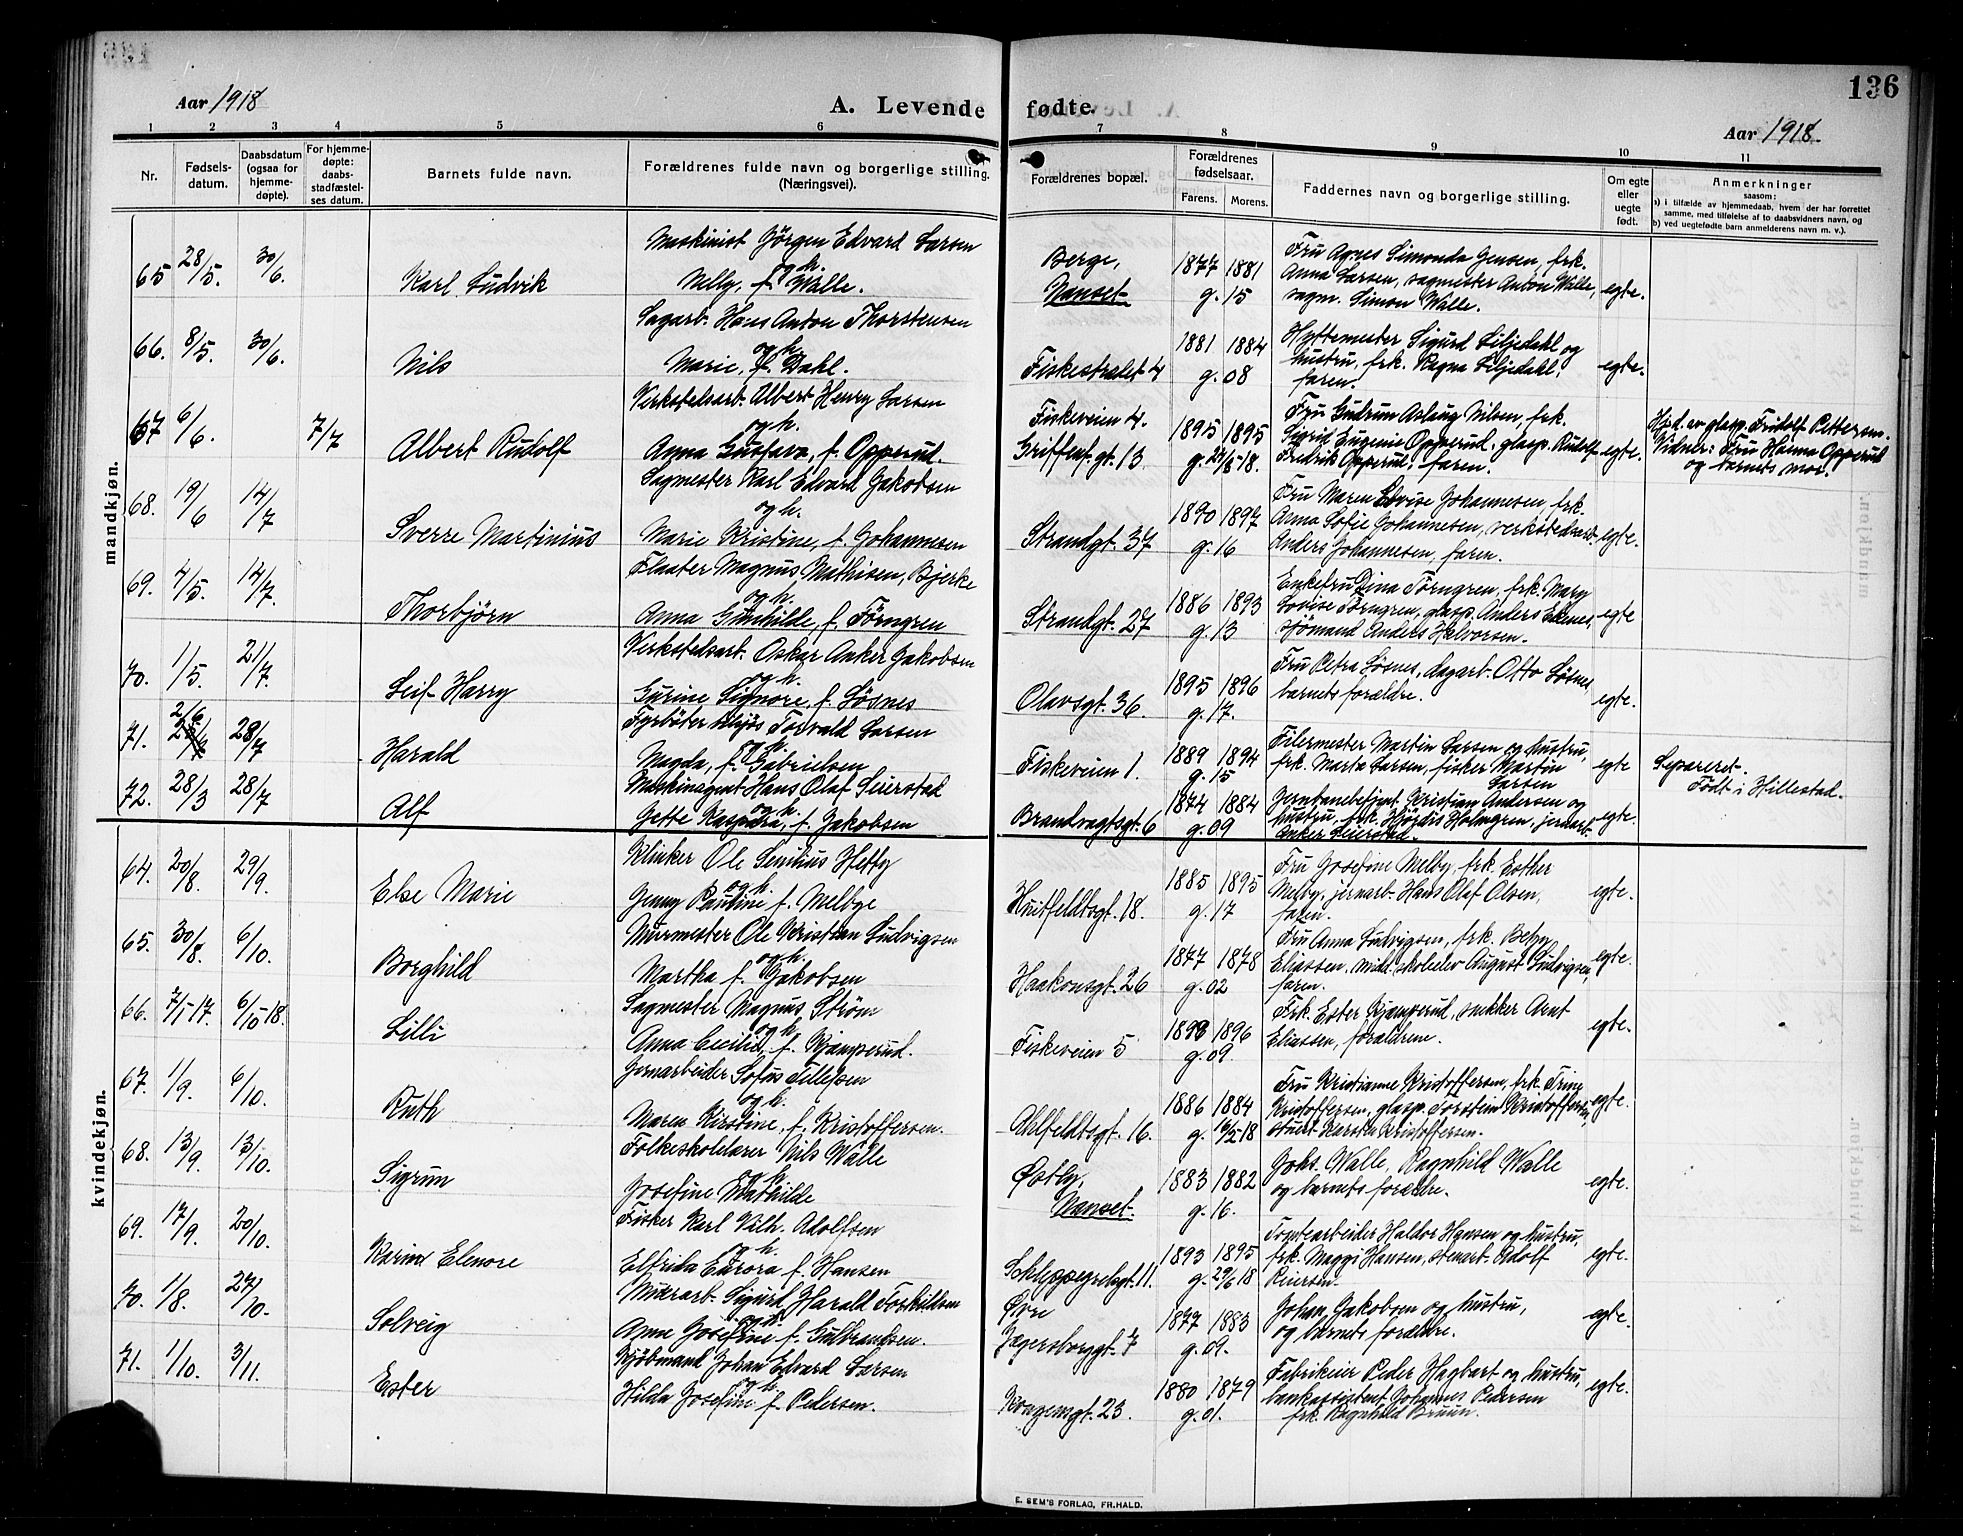 136
Aar 1918 A. Levende fødte. Aar 1918.
1 2 3 4 5 6 7 8 9 10 11
Nr. Fødsels-datum. Daabsdatum (ogsaa for hjemme-døpte). For hjemme-døpte: daabs-stadfæstel-ses datum. Barnets fulde navn. Forældrenes fulde navn og borgerlige stilling. (Næringsvei). Forældrenes bopæl. Forældrenes fødselsaar. Farens. Morens. Faddernes navn og borgerlige stilling. Om egte eller uegte født. Anmerkninger saasom: a) i tilfælde av hjemmedaab, hvem der har forrettet samme, med tilføielse af to daabsvidners navn, og b) ved uegtefødte barn anmelderens navn m. v.).
mandkjøn.
Maskinist Jørgen Edvard Larsen Berge, Fru Agnes Simonda Jensen, frk.
65 28/5. 30/6. Karl Ludvik og h. Nelly, f. Walle. Nanset 1877 1881 g. 15 Anna Larsen, sagmester Anton Walle, egte.
sagm. Simon Walle.
Sagarb. Hans Anton Thorstensen Hyttemester Sigurd Liljedahl og
66. 8/5. 30/6. Nils og h. Marie, f. Dahl. Fiskestrædet 4 1881 1884 g. 08 hustru, frk. Ragna Liljedahl, egte.
faren.
Verkstedsarb. Albert Henry Larsen Fiskeveien 4. Fru Gudrun Aslaug Nilsen, frk. Hjd. av glasp. Fridolf Pettersen.
67 6/6. 7/7 Albert Rudolf og h. Anna Gustava, f. Opperud. Griffenf. gt. 13 1895 1895 Sigrid Eugenie Opperud, glasp. Rudolf egte. Vidner: Fru Hanna Opperud
Fredrik Opperud, faren. og barnets mor.
Sagmester Karl Edvard Jakobsen Fru Maren Lovise Johannesen, frk.
68. 19/6 14/7 Sverre Martinius og h. Marie Kristine, f. Johannesen Strandgt. 37 1890 1897 g. 16 Anna Sofie Johannesen, verkstedsarb. egte.
Anders Johannesen, faren.
Flaater Magnus Mathisen, Bjerke Enkefru Dina Törngren, frk. Mary
69. 4/5. 14/7. Thorbjörn og h. Anna Gunhilde, f. Törngren Strandgt. 27 1886 1893 g. 13 Lovise Törngren, glasp. Anders Ekenes, egte
sjömand Anders Halvorsen.
Verkstedsarb. Oskar Anker Jakobsen Fru Petra Løsnes, dagarb. Otto Løsnes,
70. 1/5. 21/7. Leif Harry og h. Gurine Signore, f. Løsnes Olavsgt. 36. 1895 1896 g. 17. barnets forældre. egte.
Fyrbøter Torvald Larsen Filermester Martin Larsen og hustru,
71. 2/6 28/7 Harald og h. Magda, f. Gabrielsen Fiskeveien 1. 1889 1894 g. 15 frk. Marta Larsen, fisker Martin Larsen egte Separeret.
Maskinagent Hans Olaf Seierstad Jernbanebetjent Kristian Andersen og
72. 28/3 28/7 Alf og h. Jette Kaspara, f. Jakobsen Brandvagtsgt. 6 1874 1884 g. 09 hustru, frk. Hjørdis Holmgren, jernarb. egte. Født i Hillestad.
Anker Seierstad.
kvindekjøn.
Klinker Ole Hetty Fru Josefine Melby, frk. Esther
64. 20/8. 29/9. Else Marie og h. Jenny Pauline f. Melbye Huitfeldtsgt. 18. 1885 1895 g. 17 Melby, jernarb. Hans Olaf Olsen, egte.
faren.
Murmester Ole Kristian Ludvigsen Fru Anna Ludvigsen, frk. Betzy
65. 30/8. 6/10. Borghild og h. Martha f. Jakobsen Haakonsgt. 26 1877 1878 g. 02 Eliassen, midd. skoleelev August Ludvigsen, egte.
faren.
Sagmester Magnus Strøm Frk. Ester Kjæmperud, snekker Arnt
66. 7/1-17. 6/10-18. Lilli og h. Anna Cecilie, f. Kjæmperud. Fiskeveien 5 1893 1896 g. 09. Eliassen, forældrene. egte.
Jernarbeider Sofus Tillefsen Fru Kristianne Kristoffersen, frk. Trine
67. 1/9. 6/10. Ruth og h. Maren Kirstine, f. Kristoffersen. Ahlfeldtsgt. 16. 1886 1884 g. 16/5-18 Kristoffersen, glasp. Torstein Kristoffersen, egte.
stuert Karsten Kristoffersen.
Folkeskolelærer Nils Walle Østby, Johs. Walle, Ragnhild Walle
68. 13/9. 13/10. Sigrun og h. Josefine Mathilde Nanset. 1883 1882 g. 16. og barnets forældre. egte.
Fisker Karl Vilh. Adolfsen Tomtearbeider Haldor Hansen og hustru,
69. 17/9. 20/10. Karin Elenore og h. Elfrida Eurora f. Hansen Schleppegrelsgt. 11. 1893 1895 g. 29/6 18 frk. Maggi Hansen, stenarb. Adolf egte.
Reiersen.
Murarb. Sigurd Harald Torkildsen Øvre Johan Jakobsen og hustru,
70. 1/8. 27/10. Solveig og h. Anne Josefine f. Gulbrandsen. Jegersborggt. 7 1877 1883 g. 09. og barnets forældre. egte.
Kjøbmand Johan Edvard Larsen Fabrikeier Peder Hagbart og hustru,
71. 1/10. 3/11. Ester og h. Hilda Josefine f. Pedersen. Kongensgt. 23. 1880 1879 g. 01. bankassistent Johannes Pedersen egte.
frk. Ragnhild Bruun.
E. SEM'S FORLAG, FR.HALD.